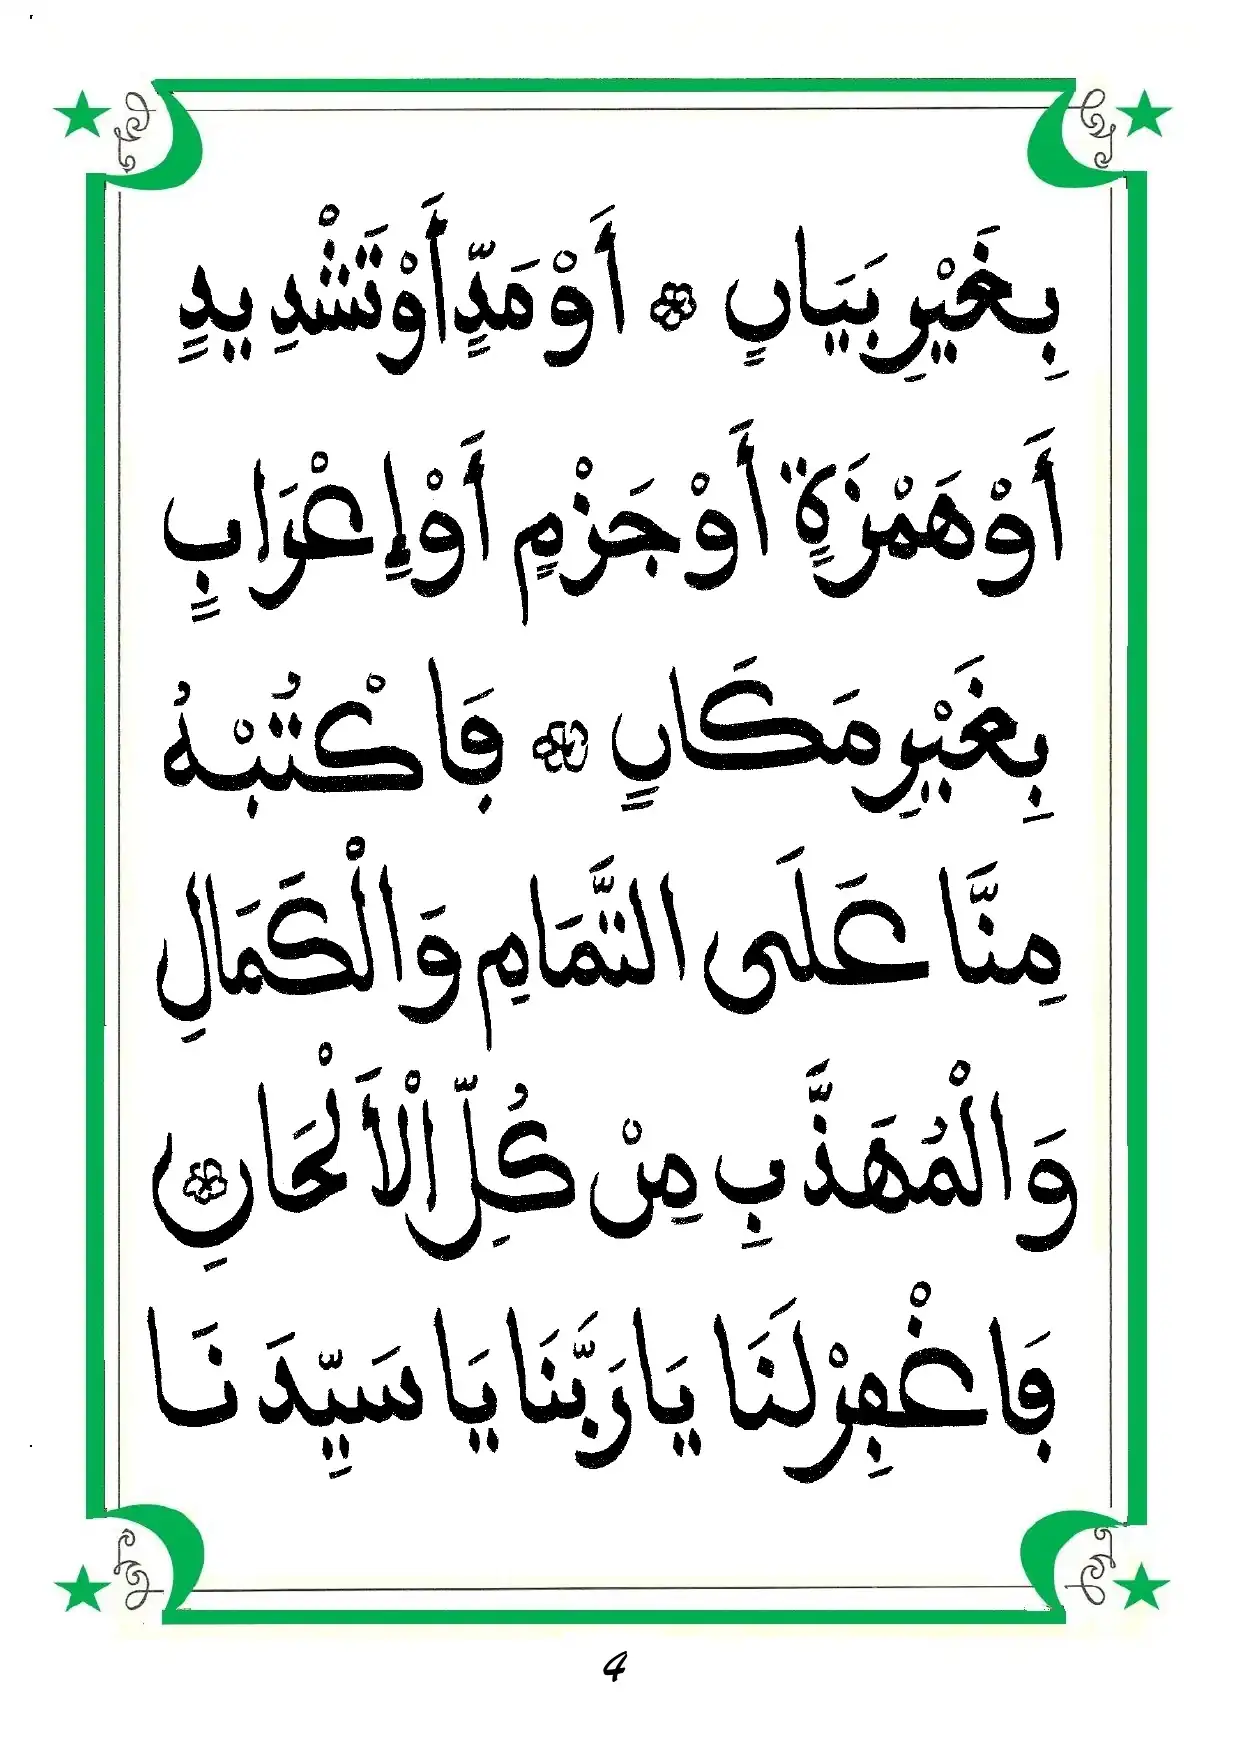 بِغَيْرِ بَيَانٍ * أَوْ مَدٍّ أَوْ تَشْدِيدٍ
أَوْ هَمْزَةٍ أَوْ جَزْمٍ أَوْ إِعْرَابٍ
بِغَيْرِ مَكَانٍ * فَاكْتُبْهُ
مِنَّا عَلَى التَّمَامِ وَالْكَمَالِ
وَالْمُهَذَّبِ مِنْ كُلِّ الْأَلْحَانِ *
فَاغْفِرْ لَنَا يَا رَبَّنَا يَا سَيِّدَنَا
4